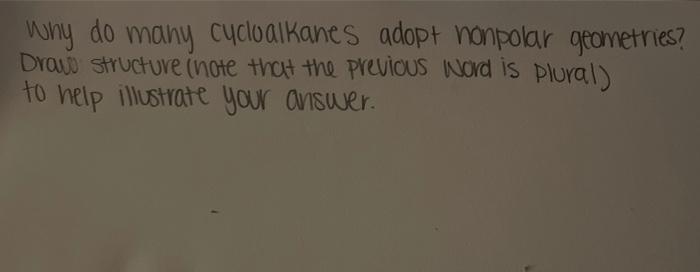 Why do many cycloalkanes adopt nonpolar geometries?
Draw structure (note that the previous word is plural)
to help illustrate your answer.